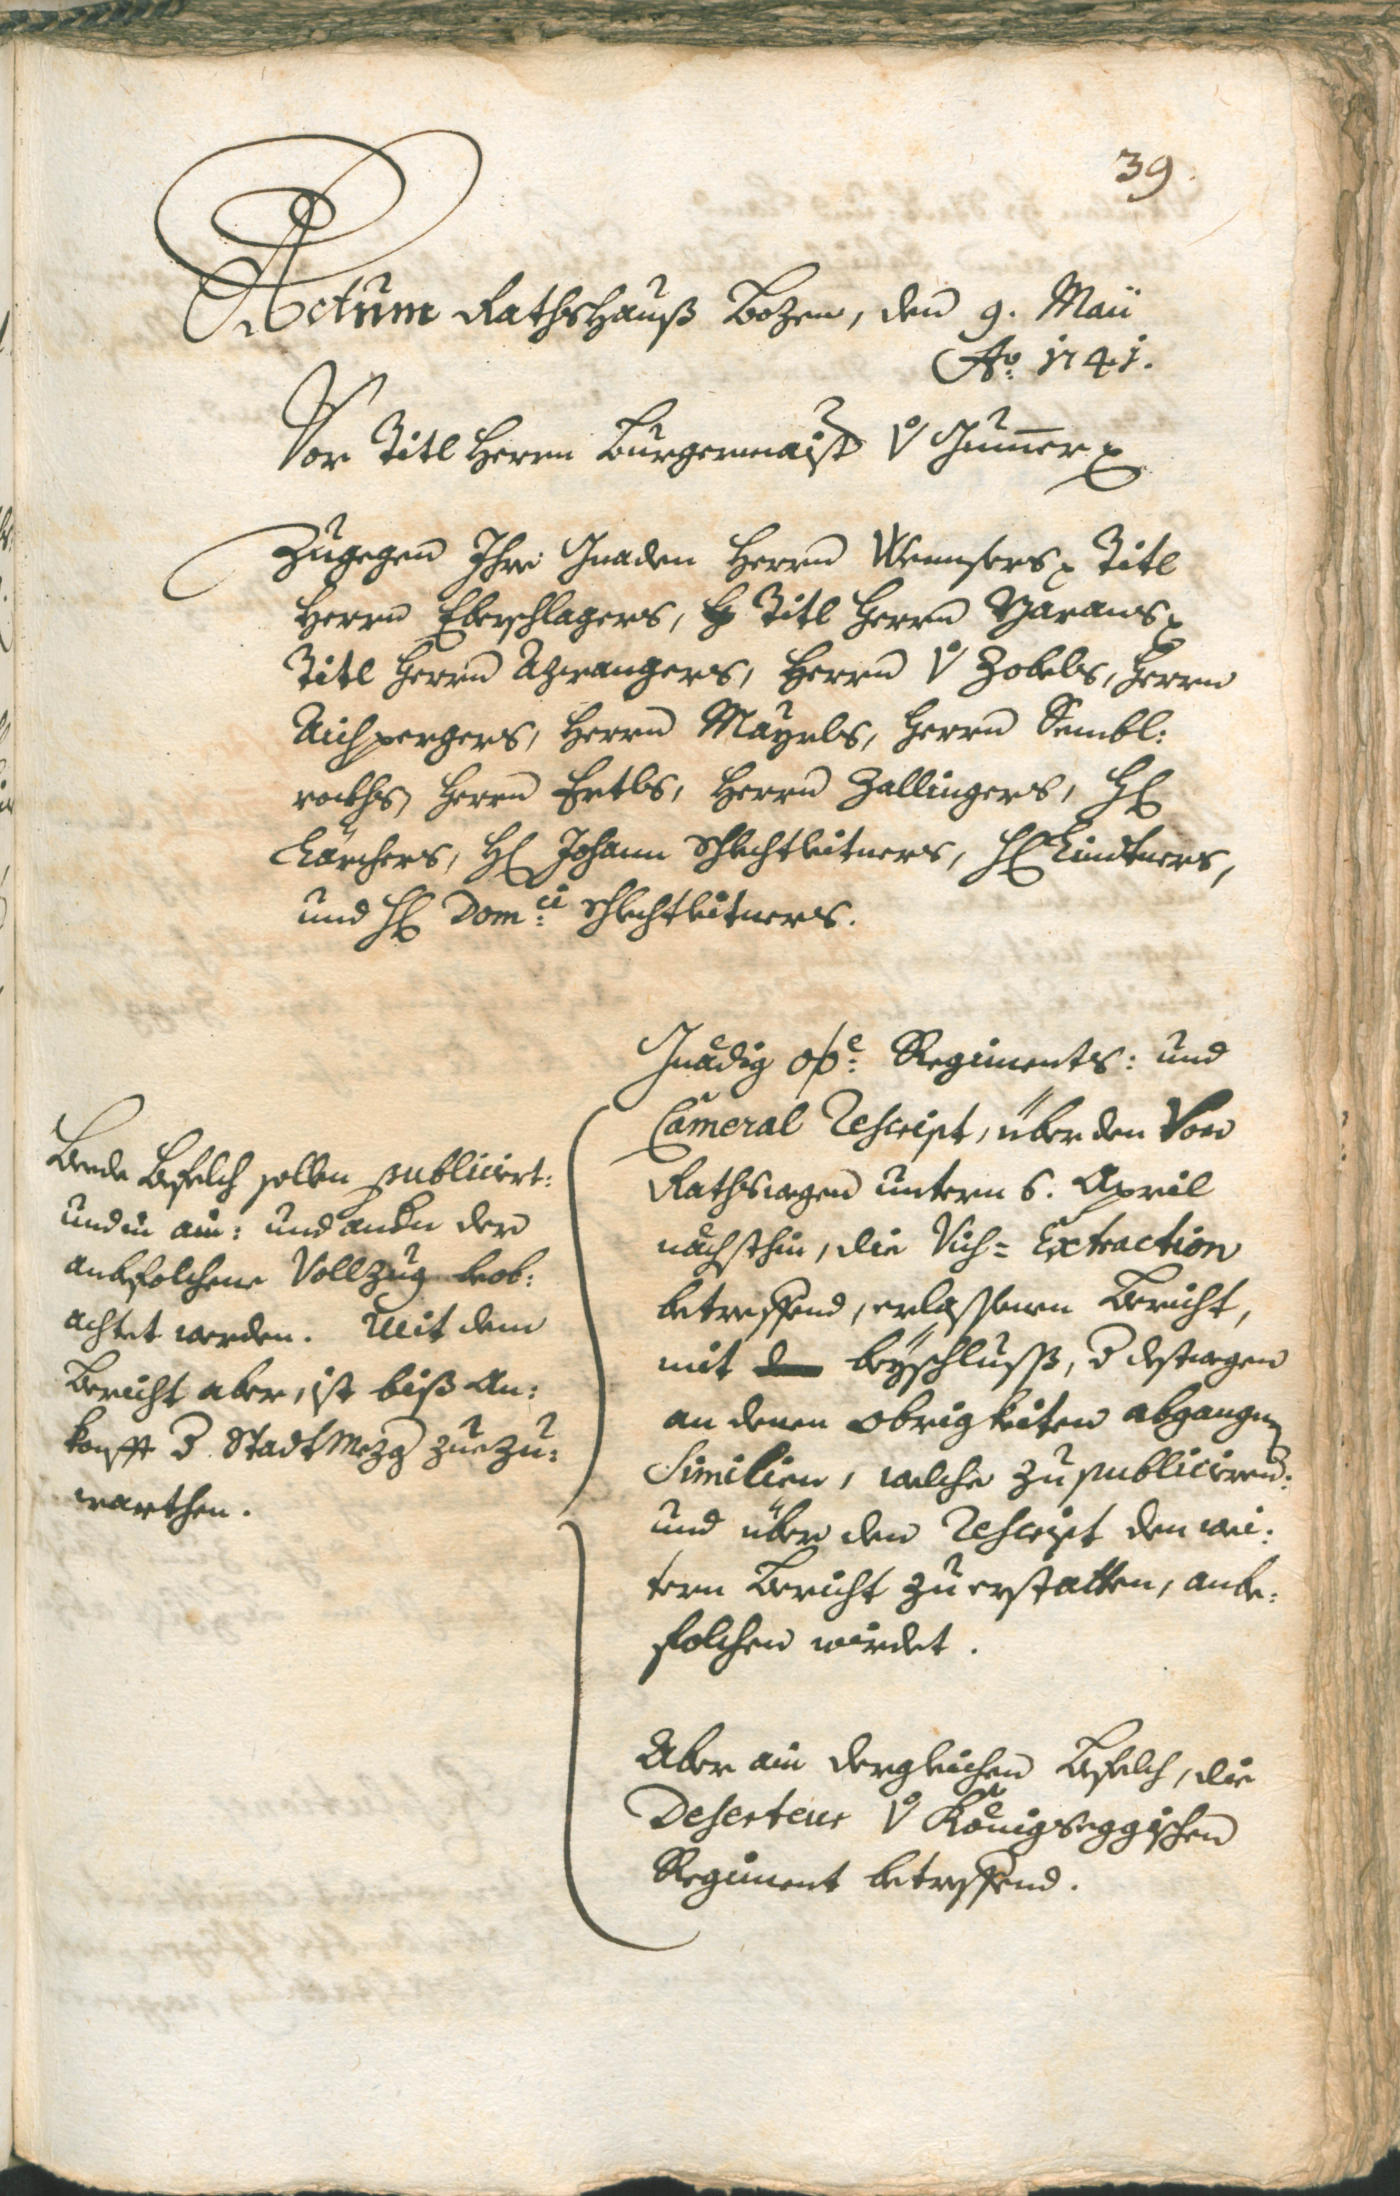 39
Actum Rathshauß Bozen, den 9. Maii
Ao: 1741.
Vor Titl Herrn Burgermaister v Gumer
Zugegen Ihro Gnaden Herrn Wensers Titl
Herrn Eberschlagers, Titl Herrn
Titl Herrn Azwangers, Herrn v Zobls, Herrn
Aichpergers, Herrn Mayrls, Herrn Sembl:
rockhs, Herrn Ertls, Herrn Zallingers, H
Karchers, H Johann Schlechtleitners, H Lindtners,
und H Dom:ci Schlechtleitners.
Gnädig o:ö:e Regiments: und
Cameral Rescript, über den Von
Rathswegen untern 6. April
nächsthin, die Vich= Extraction
betreffend, erlassenen Bericht,
mit beyschluss, d destwegen
an denen obrigkeiten abgangnen
Similien, welche zu publiciren:
und über den Rescript den wei:
tern Bericht zu erstatten, anbe:
folchen würdet.
Beede Befelch sollen publiciert:
und in ain: und andern der
anbefolchene Vollzug beob:
achtet werden. Mit dem
Bericht aber, ist biß An:
konfft d. Stadt Mezg zuezu:
warthen.
Aber ain dergleichen Befelch, die
Deserteur v Königseggischen
Regiment betreffend.